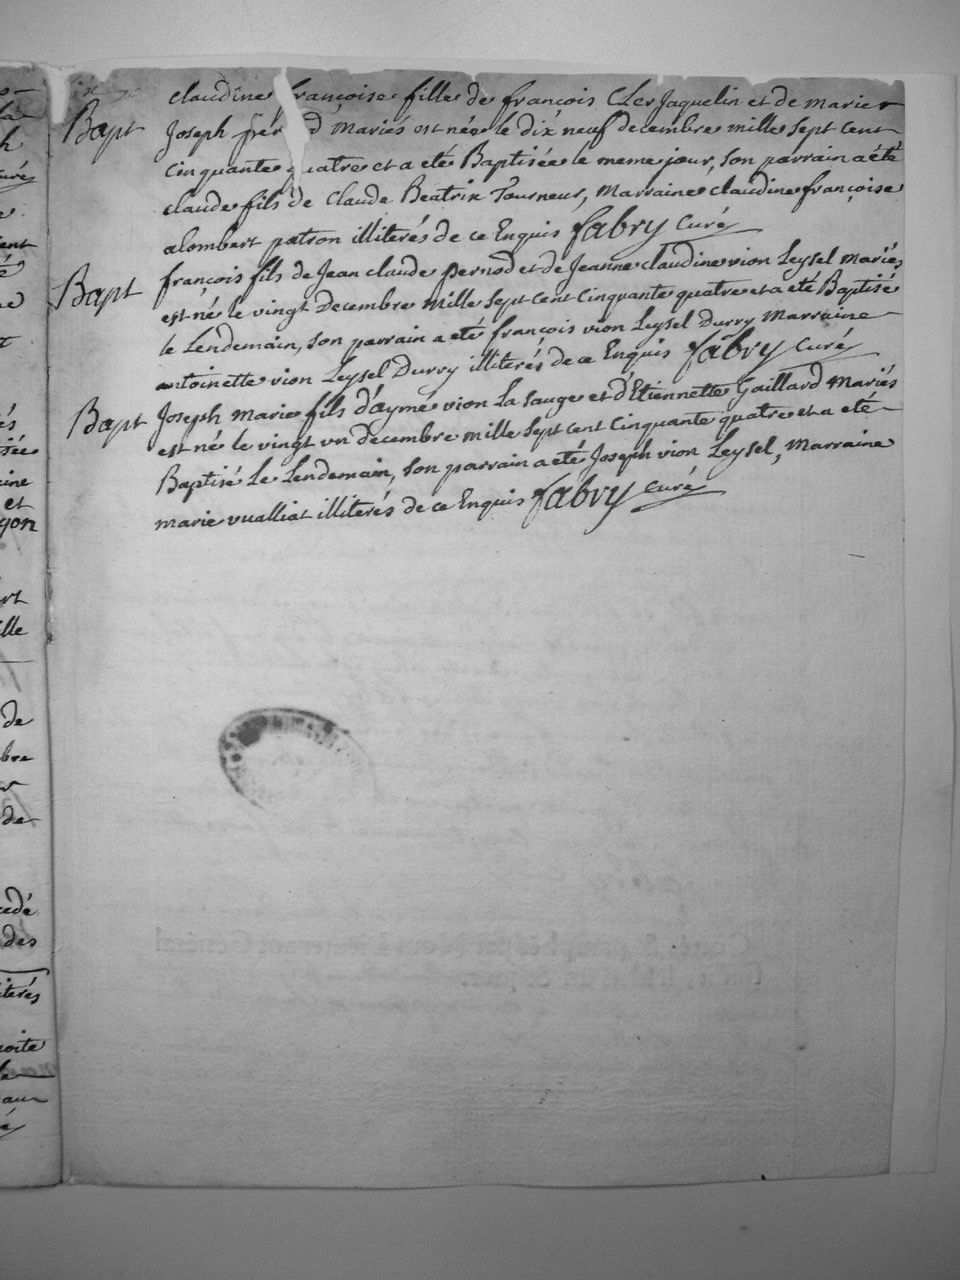 Bapt
claudine françoise fille de françois Cler Jaquelin et de marie
Joseph fér d mariés est née le dix neuf decembre mille Sept Cent
Cinquante quatre et a eté Baptisée le meme jour, Son parrain a été
claude fils de Claude Beatrix Tourneur, Marraine claudine françoise
alombert patron illiterés de ce Enquis fabry Curé
Bapt
françois fils de Jean claude pernod et de Jeanne claudine vion Leysel mariés
est né le vingt Decembre mille Sept Cent Cinquante quatre et a eté Baptisé
le Lendemain, Son parrain a eté françois vion Leysel Durry Marraine
antoinette vion Leysel Durry illiterés de ce Enquis fabry Curé
Bapt
Joseph marie fils d'aymé vion La Sauge et d'Etiennette Gaillard Mariés
est né le vingt vn decembre mille Sept Cent Cinquante quatre et a eté
Baptisé Le Lendemain, Son parrain a eté Joseph vion Leysel, Marraine
marie vualliat illiterés de ce Enquis fabry Curé